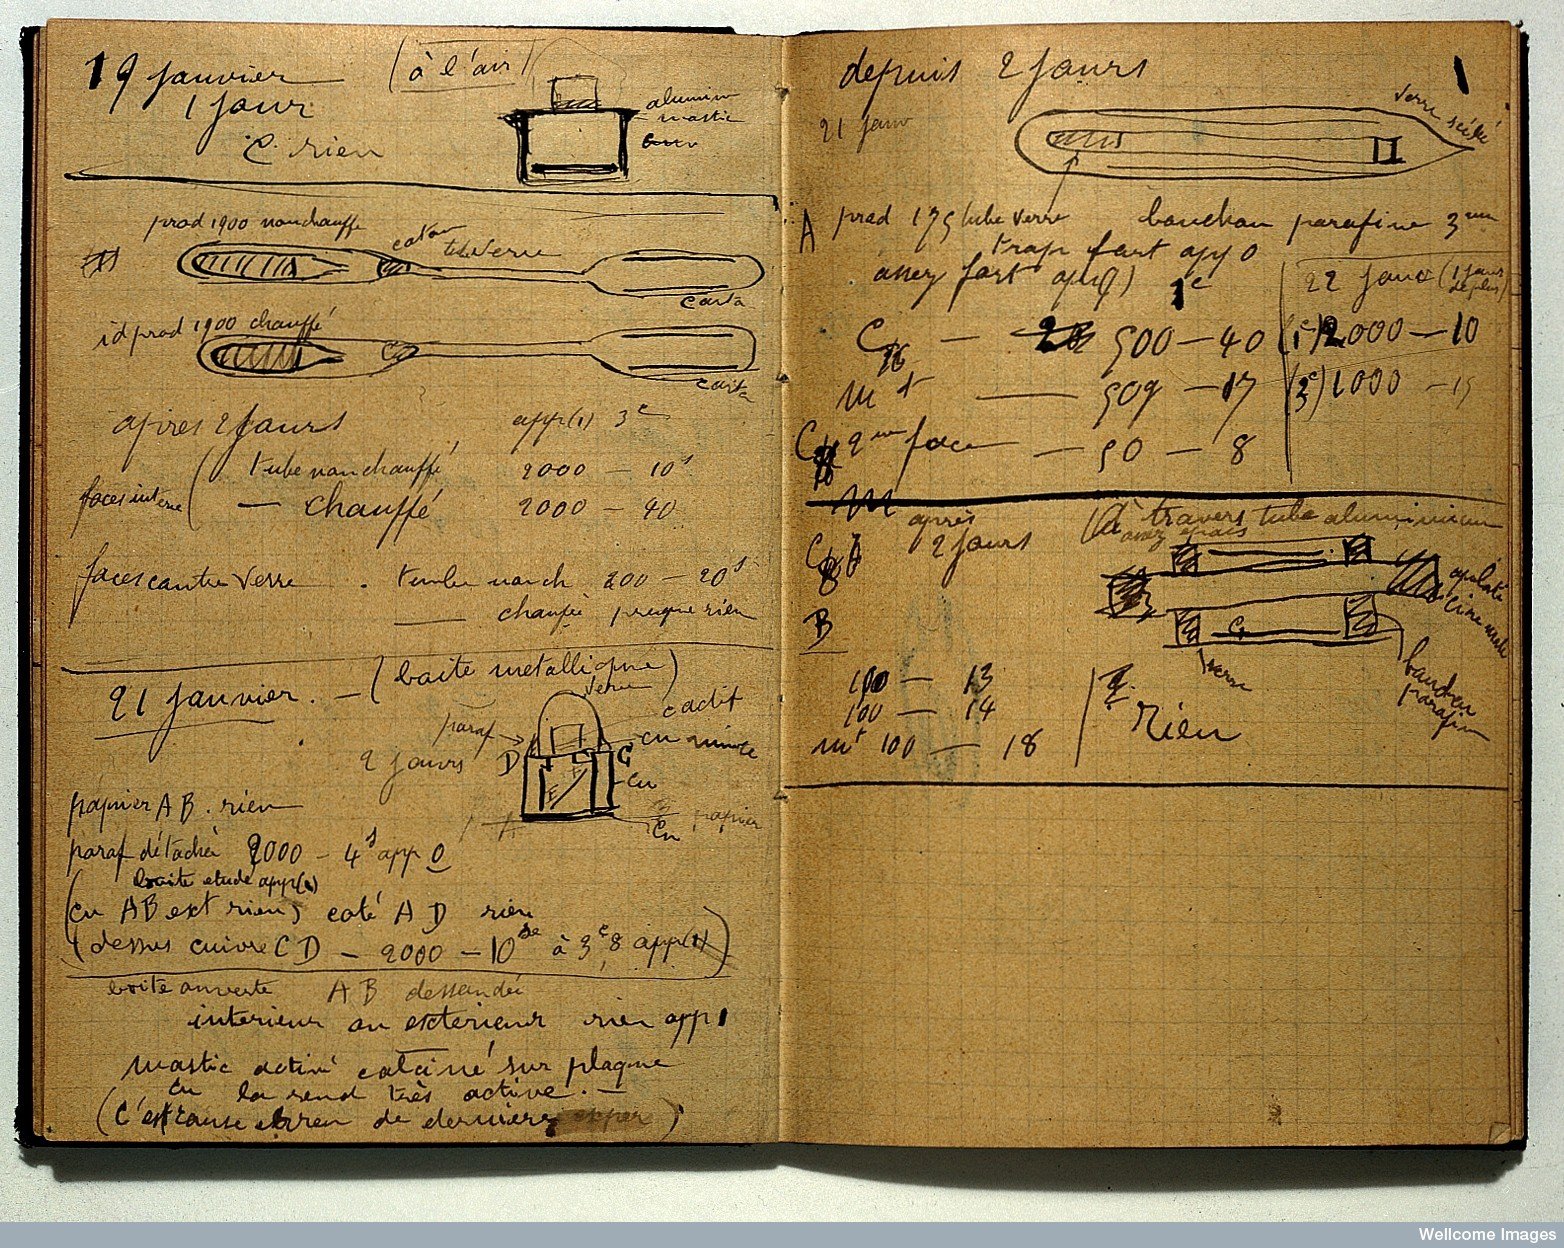 19 janvier
(à l'air)
1 jour
C rien
alumin
mastic
prod 1900 non chauffé
coton
tube verre
carto
id prod 1900 chauffé
carto
après 2 jours app(1) 3e
faces interne ( tube non chauffé 2000 — 10s
— chauffé 2000 — 40
faces contre verre . tube non ch 200 — 20s
— chauffé presque rien
21 janvier. — (boite metallique)
verre
paraf
c actif
cu mince
2 jours D C
cu
E
papier AB. rien
A
Cu papier
paraf détaché 2000 — 4s app 0
boite etude app(1)
(cu AB ext rien, coté AD rien
(dessus cuivre CD — 2000 — 10 à 3e8 app(1))
boite ouverte AB dessoudé
interieur ou exterieur rien app 1
mastic activé calciné sur plaque
cu la rend très active. —
(C'est cause de dernière exper)
depuis 2 jours
1
21 janv
verre scéllé
A prod 175 tube verre bouchon parafine 3mm
trop fort app 0
assez fort app 1e
22 janv (1 jour de plus)
C — 500 — 40 (1e) 2000 — 10
mt — 509 — 17 (3e) 1000 — 15
C 2me face — 50 — 8
M
après
2 jours
(à travers tube aluminium
assez épais
C
B
Cu
verre
bouchon
parafin
100 — 13
100 — 14
mt 100 — 18
rien
Wellcome Images